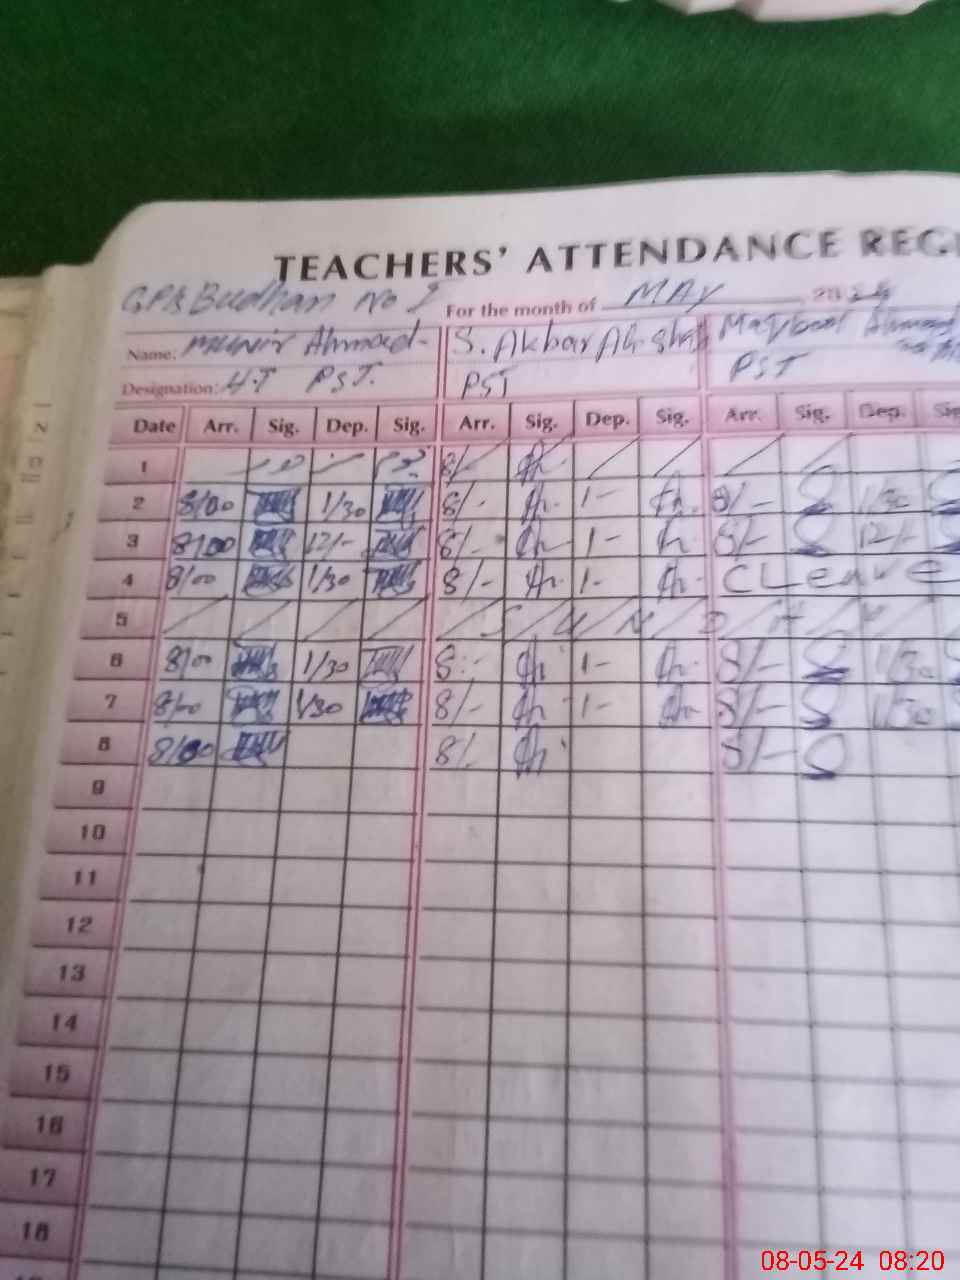 TEACHERS' ATTENDANCE REG
GPS Budhan No
For the month of MAY 2024
Name: Munir Ahmad S. Akbar Ali Shah Maqbool Ahmad
Designation: H.T PST. PST PST
Date Arr. Sig. Dep. Sig. Arr. Sig. Dep. Sig. Arr. Sig. Dep. Sig
1 8/-
2 8/00 1/30 8/- 1- 8/- 1/30
3 8/00 12/- 8/- 1- 8/- 12/-
4 8/00 1/30 8/- 1- C Leave
5 S U N D A Y
6 8/00 1/30 8:- 1- 8/- 1/30
7 8/00 1/30 8/- 1- 8/- 1/30
8 8/00 8/- 8/-
9
10
11
12
13
14
15
16
17
18
08-05-24 08:20